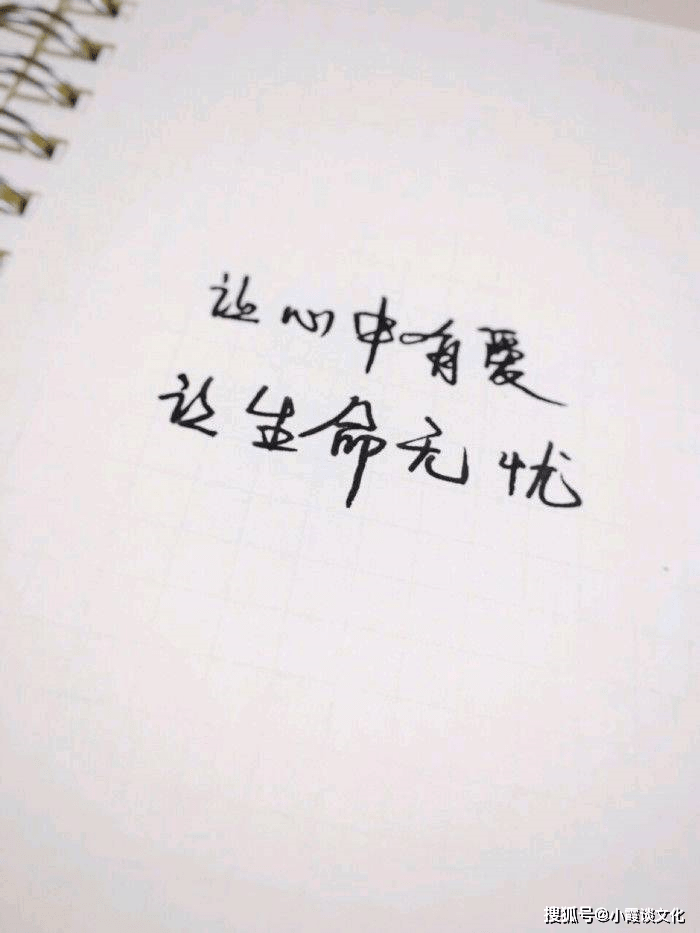 让心中有愛
让生命无忧
搜狐号@小霞谈文化